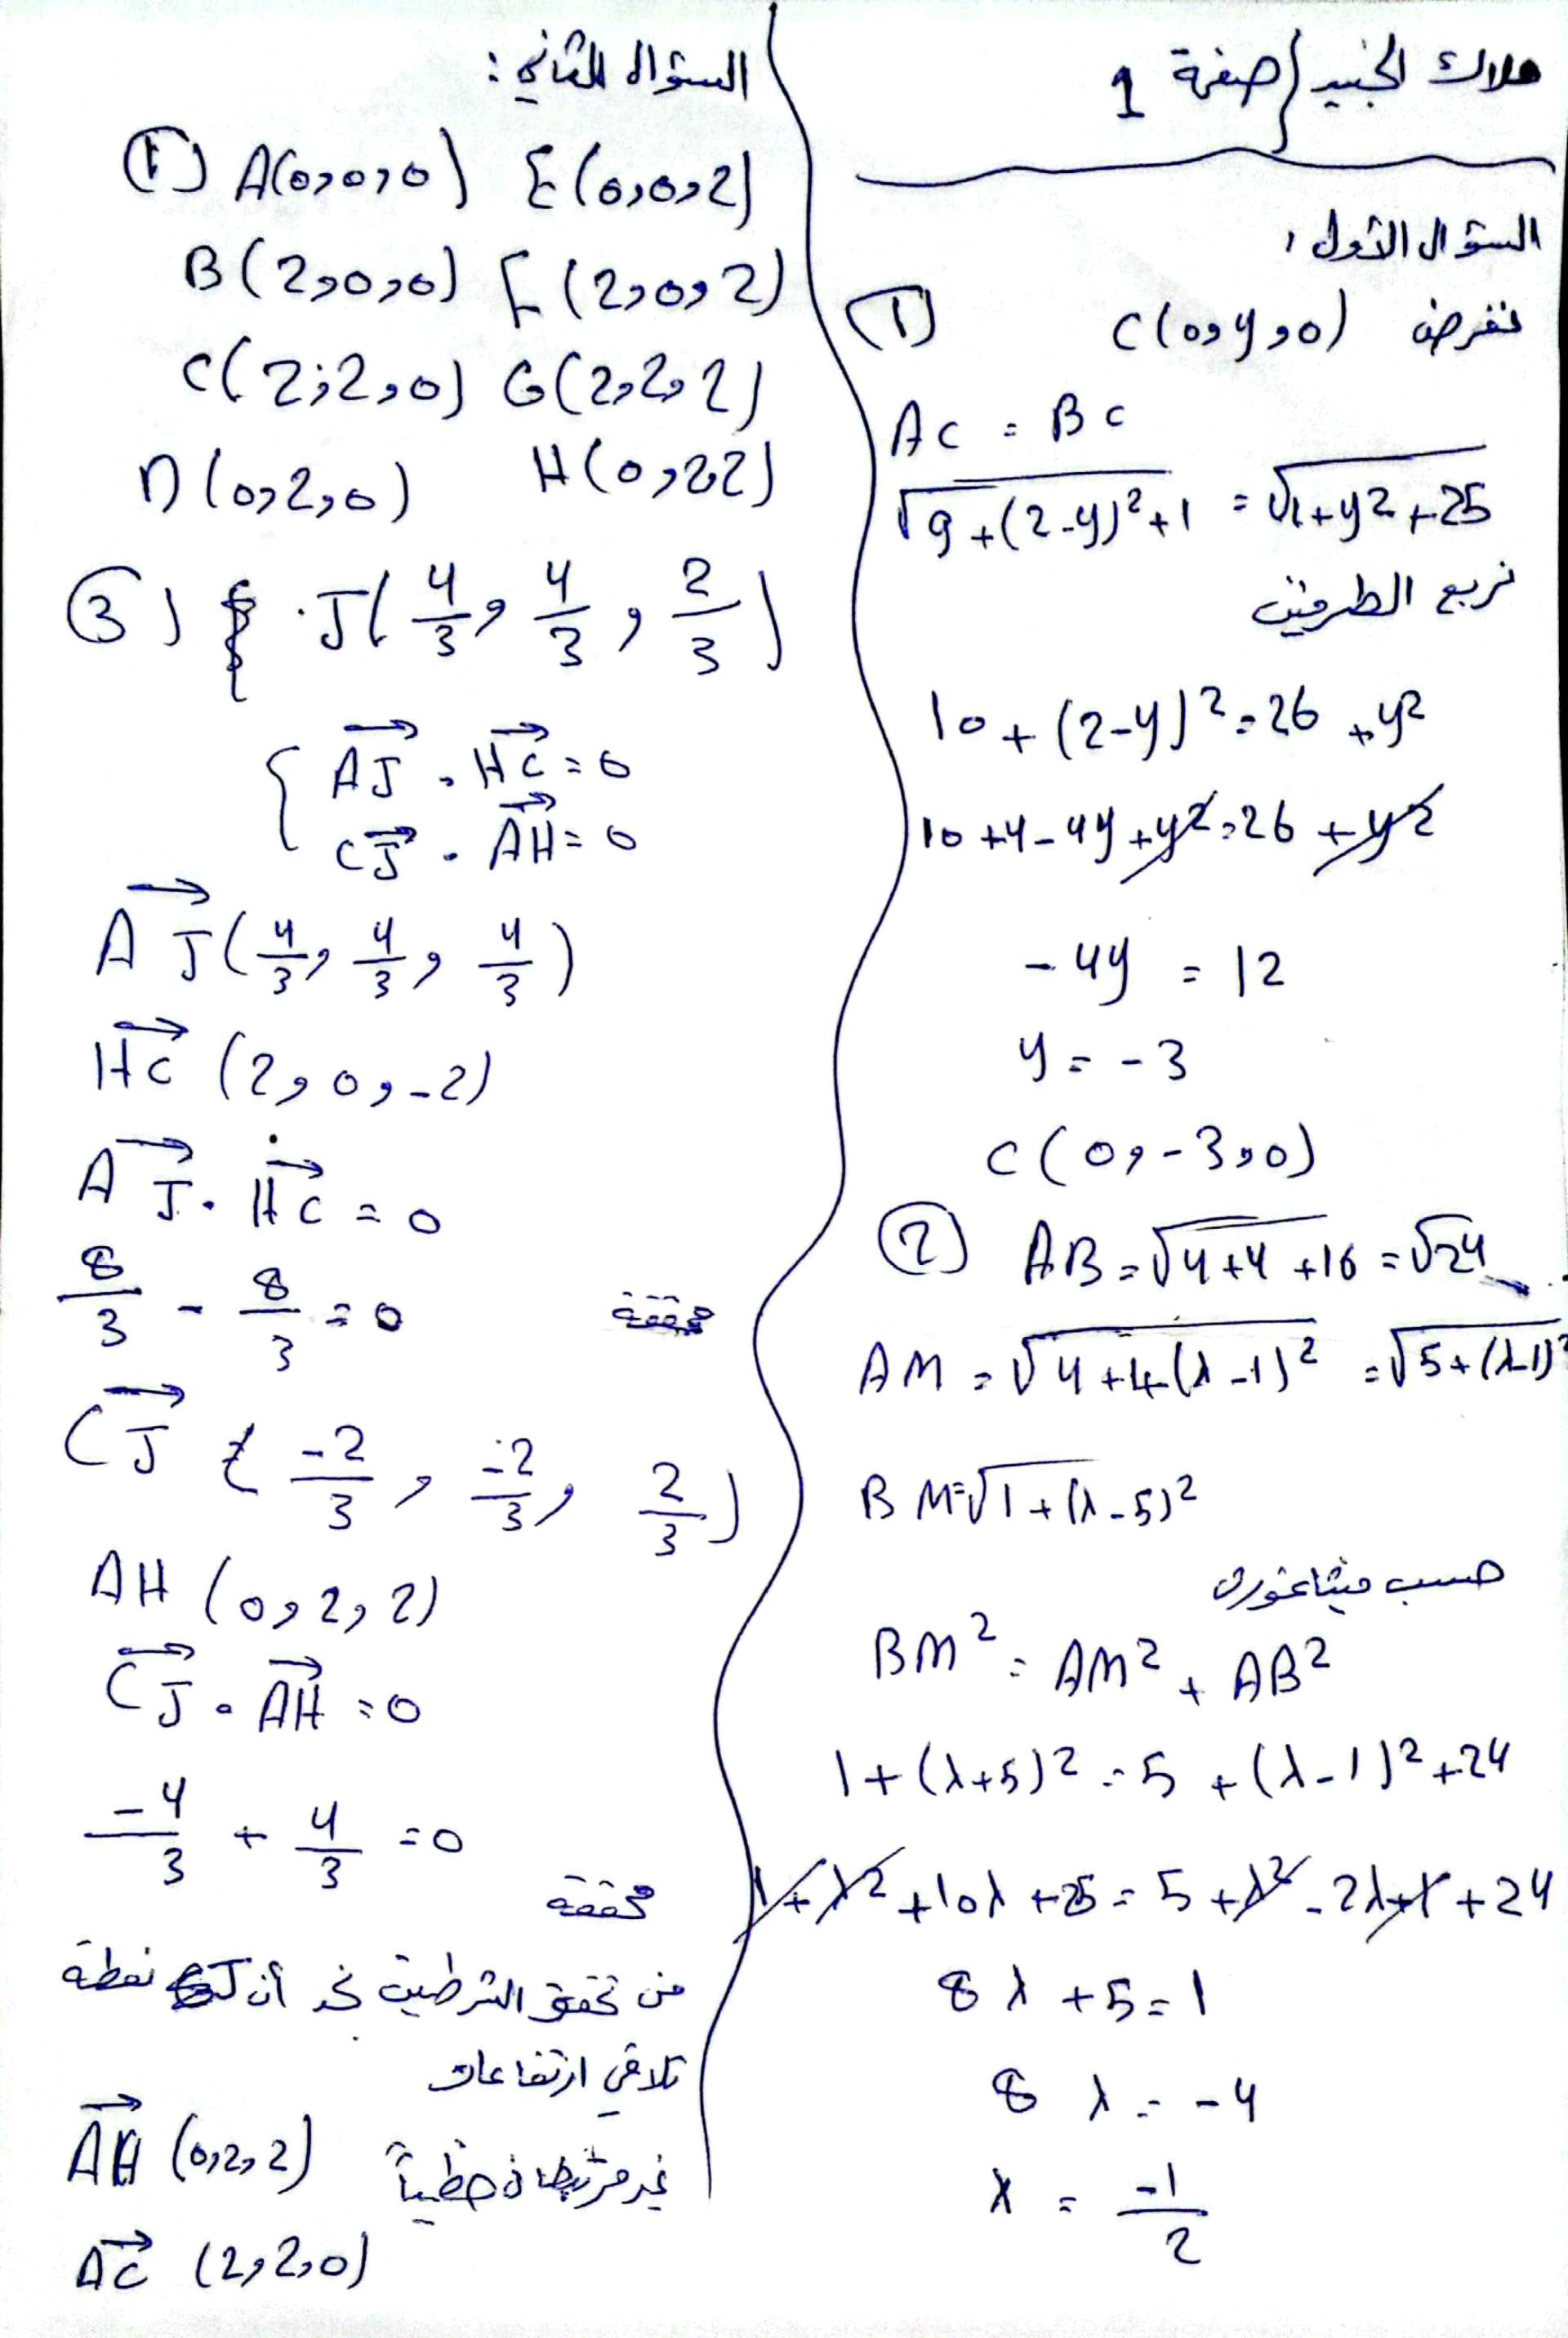 ملاك الجنيد / صفحة 1
السؤال الأول:
① نفرض C(0,y,0)
AC = BC
√9+(2-y)²+1 = √1+y²+25
نربع الطرفين
10+(2-y)²=26+y²
10+4-4y+y²=26+y²
-4y = 12
y = -3
C(0,-3,0)
② AB=√4+4+16=√24
AM=√4+4(λ-1)² =√5+(λ-1)²
BM=√1+(λ-5)²
حسب فيثاغورث
BM² = AM² + AB²
1+(λ+5)² = 5+(λ-1)²+24
1+λ²+10λ+25=5+λ²-2λ+1+24
8λ+5=1
8λ=-4
λ = -1/2
السؤال الثاني:
① A(0,0,0) E(0,0,2)
B(2,0,0) F(2,0,2)
C(2;2,0) G(2,2,2)
D(0,2,0) H(0,2,2)
③ J(4/3, 4/3, 2/3)
{ AJ . HC = 0
CJ . AH = 0
AJ(4/3, 4/3, 4/3)
HC (2,0,-2)
AJ . HC = 0
8/3 - 8/3 = 0 محققة
CJ (-2/3, -2/3, 2/3)
AH (0,2,2)
CJ . AH = 0
-4/3 + 4/3 = 0
محققة
من تحقق الشرطين نجد أن J نقطة
تلاقي ارتفاعات
AH (0,2,2) غير مرتبطان خطياً
AC (2,2,0)